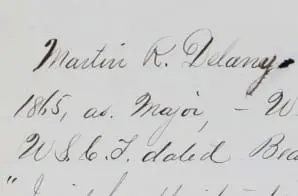 Martin R. Delany
1865, as Major, – W
U.S.C.T. dated Bea
"